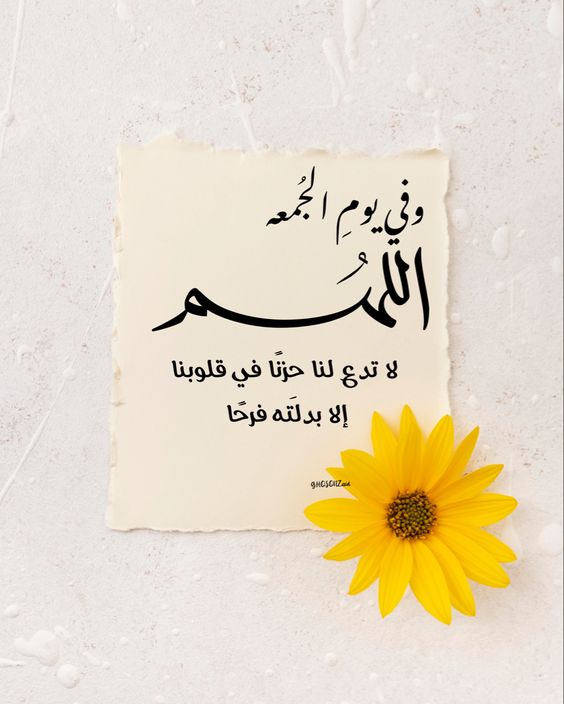 وفي يومِ الجُمعه
اللهُم
لا تدع لنا حزنًا في قلوبنا
إلا بدلتَه فرحًا